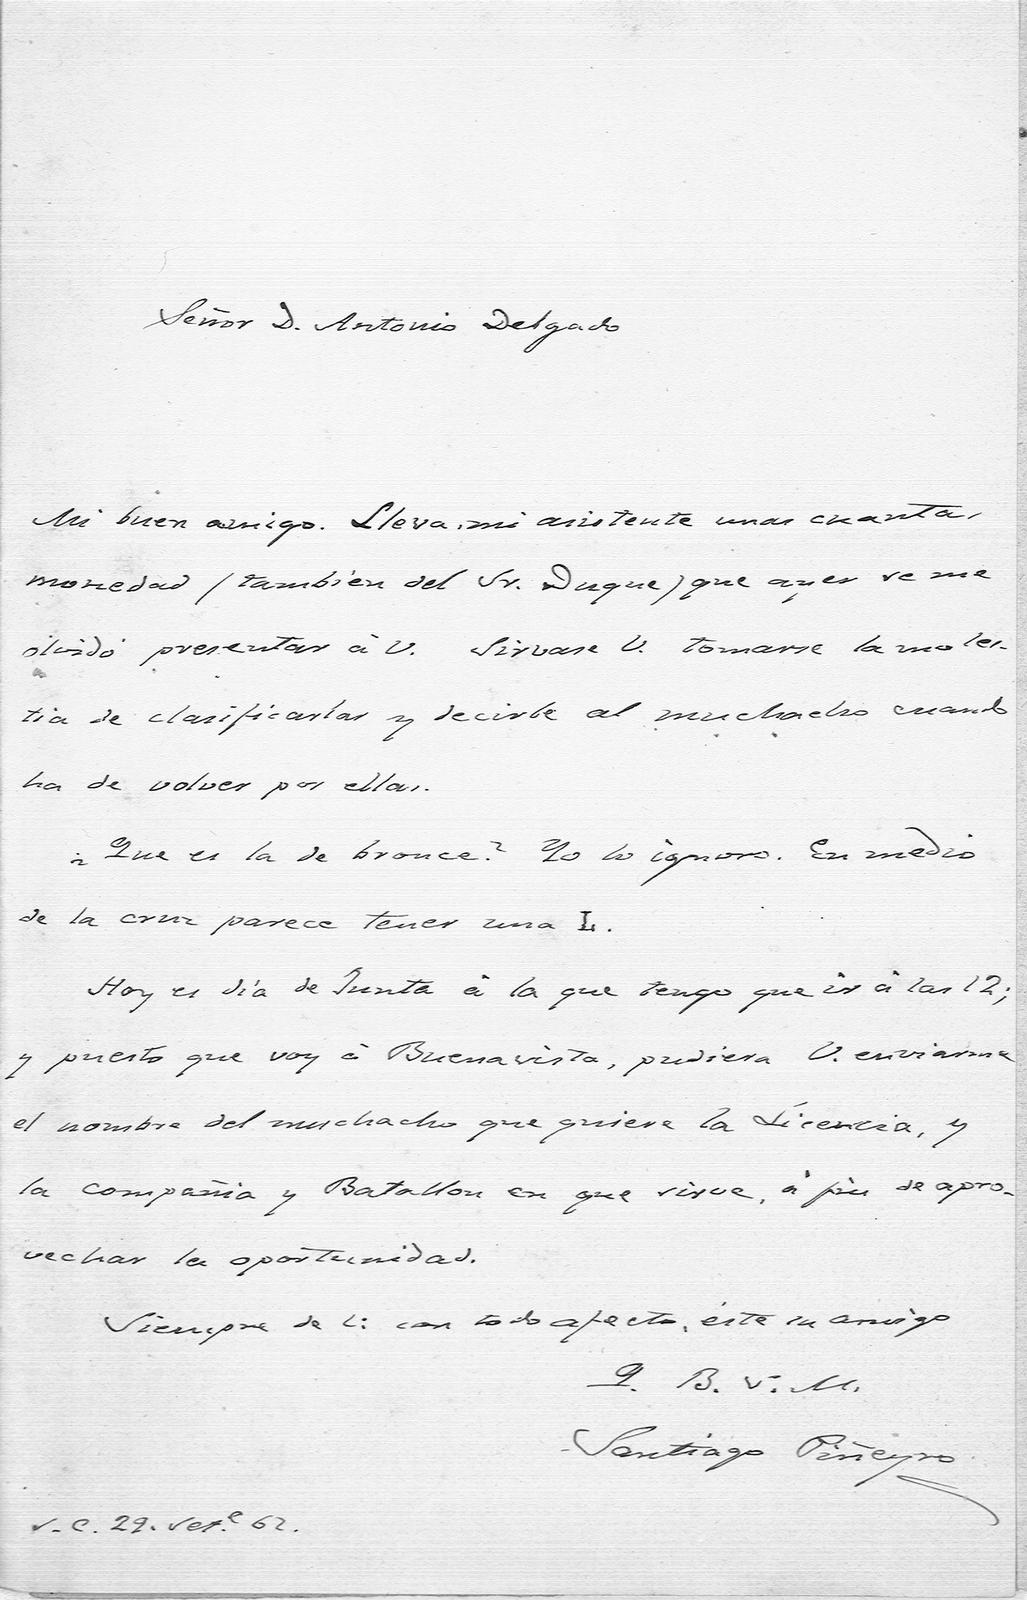 Señor D. Antonio Delgado
Mi buen amigo. Lleva mi asistente unas cuantas
monedas (tambien del Sr. Duque) que ayer se me
olvidó presentar á V. Sirvase V. tomarse la moles-
tia de clasificarlas y decirle al muchacho cuando
ha de volver por ellas.
¿Que es la de bronce? Yo lo ignoro. En medio
de la cruz parece tener una L.
Hoy es día de Junta á la que tengo que ir á las 12;
y puesto que voy á Buenavista, pudiera V. enviarme
el nombre del muchacho que quiere la Licencia, y
la compañia y Batallon en que sirve, á fin de apro-
vechar la oportunidad.
Siempre de V. con todo afecto, éste su amigo
Q. B. S. M.
Santiago Piñeyro
S. C. 29. Set.e 62.